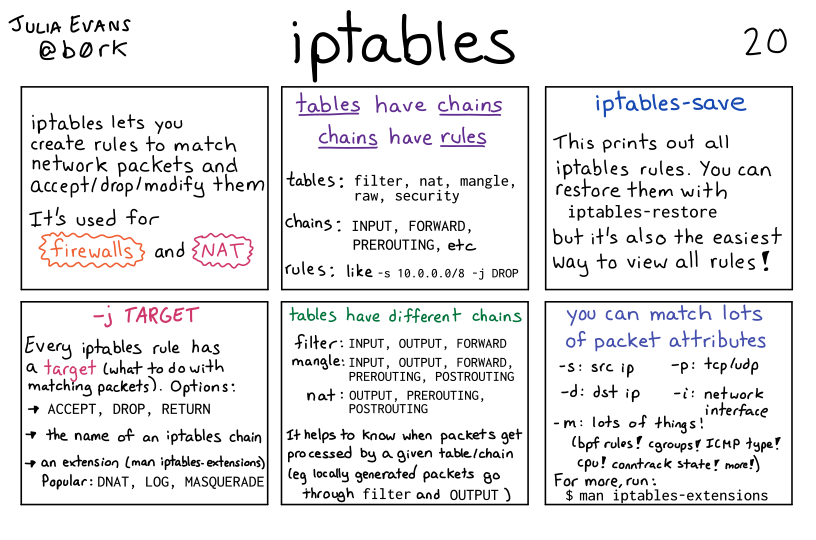 JULIA EVANS
@b0rk
iptables
20
iptables lets you
create rules to match
network packets and
accept/drop/modify them
It's used for
firewalls and NAT
tables have chains
chains have rules
tables: filter, nat, mangle,
raw, security
chains: INPUT, FORWARD,
PREROUTING, etc
rules: like -s 10.0.0.0/8 -j DROP
iptables-save
This prints out all
iptables rules. You can
restore them with
iptables-restore
but it's also the easiest
way to view all rules!
-j TARGET
Every iptables rule has
a target (what to do with
matching packets). Options:
→ ACCEPT, DROP, RETURN
→ the name of an iptables chain
→ an extension (man iptables-extensions)
Popular: DNAT, LOG, MASQUERADE
tables have different chains
filter: INPUT, OUTPUT, FORWARD
mangle: INPUT, OUTPUT, FORWARD,
PREROUTING, POSTROUTING
nat: OUTPUT, PREROUTING,
POSTROUTING
It helps to know when packets get
processed by a given table/chain
(eg locally generated packets go
through filter and OUTPUT)
you can match lots
of packet attributes
-s: src ip -p: tcp/udp
-d: dst ip -i: network
interface
-m: lots of things!
(bpf rules! cgroups! ICMP type!
cpu! conntrack state! more!)
For more, run:
$ man iptables-extensions